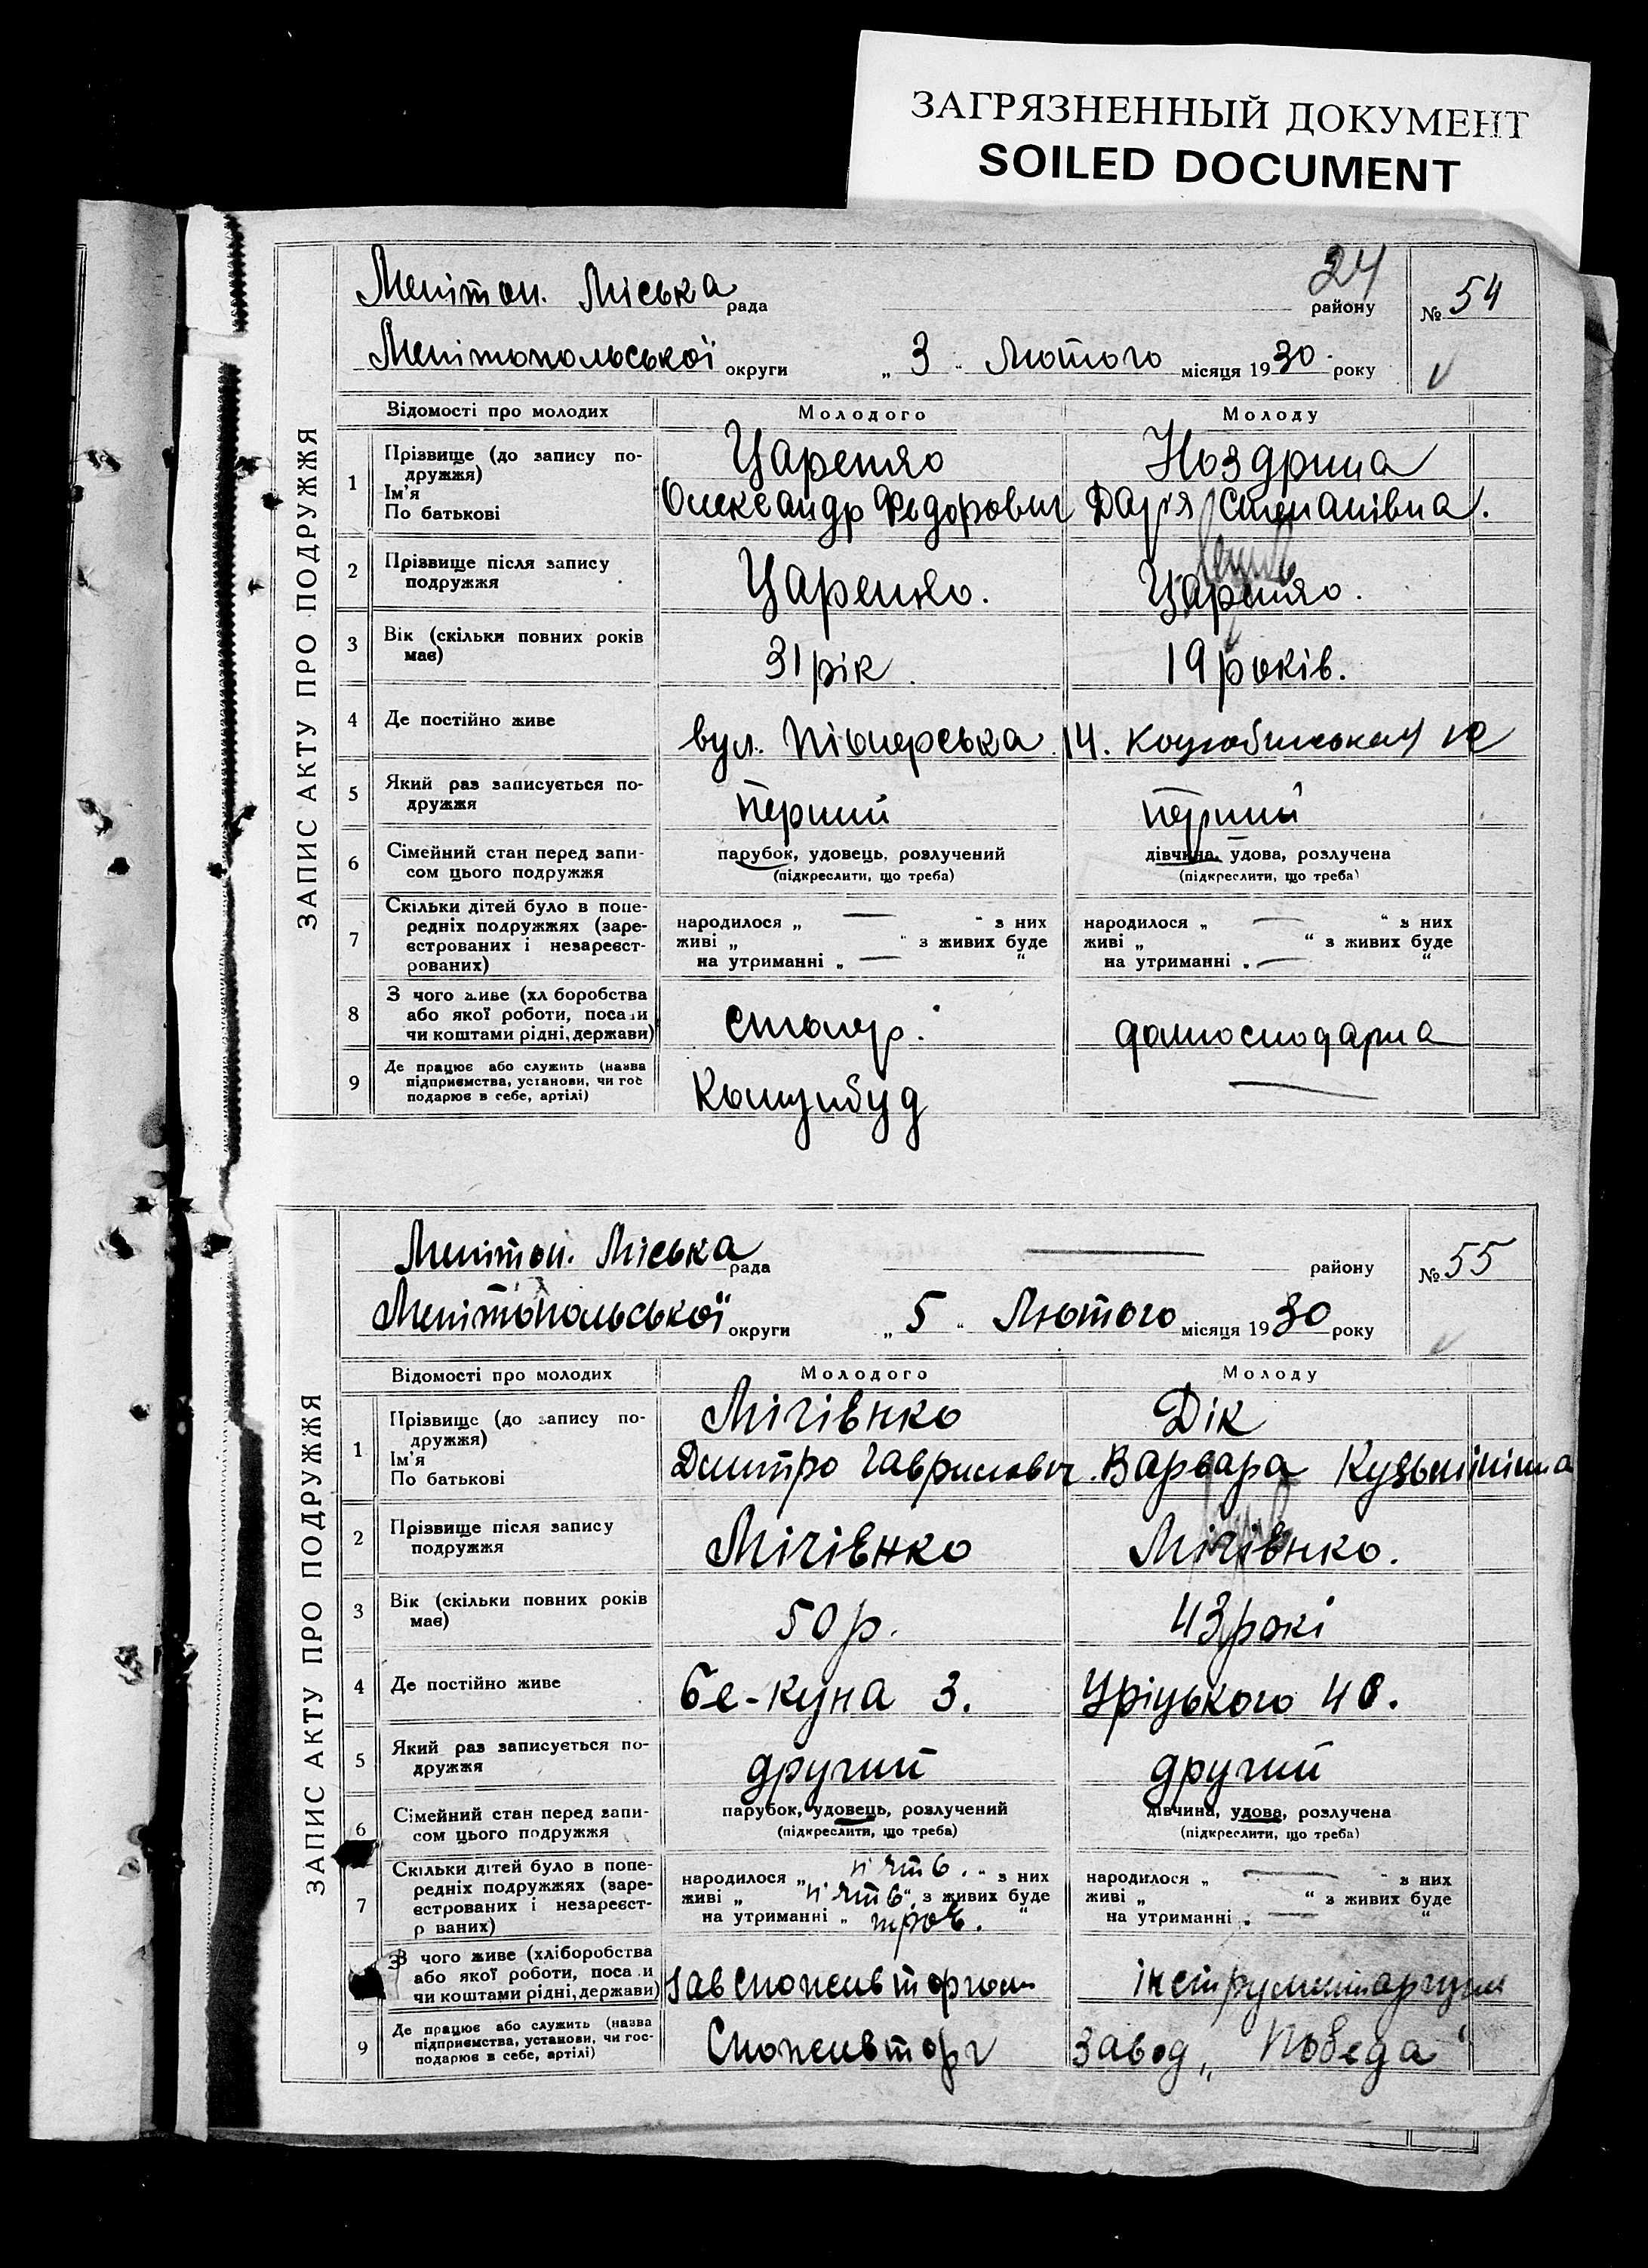 ЗАГРЯЗНЕННЫЙ ДОКУМЕНТ
SOILED DOCUMENT
24
ЗАПИС АКТУ ПРО ПОДРУЖЖЯ
Мелітоп. Міська рада району № 54
Мелітопольської округи „ 3 “ Лютого місяця 1930 року
Відомості про молодих Молодого Молоду
1 Прізвище (до запису по- Царенко Ноздрина
дружжя)
Ім'я Олександр Федорович Дарія Степанівна.
По батькові
2 Прізвище після запису Царенко. Царенко.
подружжя
3 Вік (скільки повних років 31 рік. 19 років.
має)
4 Де постійно живе вул. Піонерська 14.
5 Який раз записується по- перший перший
дружжя
6 Сімейний стан перед запи- парубок, удовець, розлучений дівчина, удова, розлучена
сом цього подружжя (підкреслити, що треба) (підкреслити, що треба)
7 Скільки дітей було в попе-
редніх подружжях (заре- народилося „ — “ з них народилося „ — “ з них
єстрованих і незареєст- живі „ “ з живих буде живі „ “ з живих буде
рованих) на утриманні „ — “ на утриманні „ — “
8 З чого живе (хл боробства
або якої роботи, поса и столяр. домогосподарка
чи коштами рідні, держави)
9 Де працює або служить (назва
підприємства, установи, чи гос Комунбуд —
подарює в себе, артілі)
ЗАПИС АКТУ ПРО ПОДРУЖЖЯ
Мелітоп. Міська рада — району № 55
Мелітопольської округи „ 5 “ Лютого місяця 1930 року
Відомості про молодих Молодого Молоду
1 Прізвище (до запису по- Мігівнко Дік
дружжя)
Ім'я Дмитро Гаврилович Варвара Кузьмінішна
По батькові
2 Прізвище після запису Мігівнко Мігівнко.
подружжя
3 Вік (скільки повних років 50 р. 43 рокі
має)
4 Де постійно живе Бе-куна 3. Уріцького 46.
5 Який раз записується по- другий другий
дружжя
6 Сімейний стан перед запи- парубок, удовець, розлучений дівчина, удова, розлучена
сом цього подружжя (підкреслити, що треба) (підкреслити, що треба)
7 Скільки дітей було в попе-
редніх подружжях (заре- народилося „ п'ять. “ з них народилося „ — “ з них
єстрованих і незареєст- живі „ п'ять “ з живих буде живі „ “ з живих буде
р ваних) на утриманні „ троє. “ на утриманні „ — “
З чого живе (хліборобства
або якої роботи, поса и завспоживторгом
чи коштами рідні, держави)
9 Де працює або служить (назва
підприємства, установи, чи гос- Споживторг Завод „Победа“
подарює в себе, артілі)